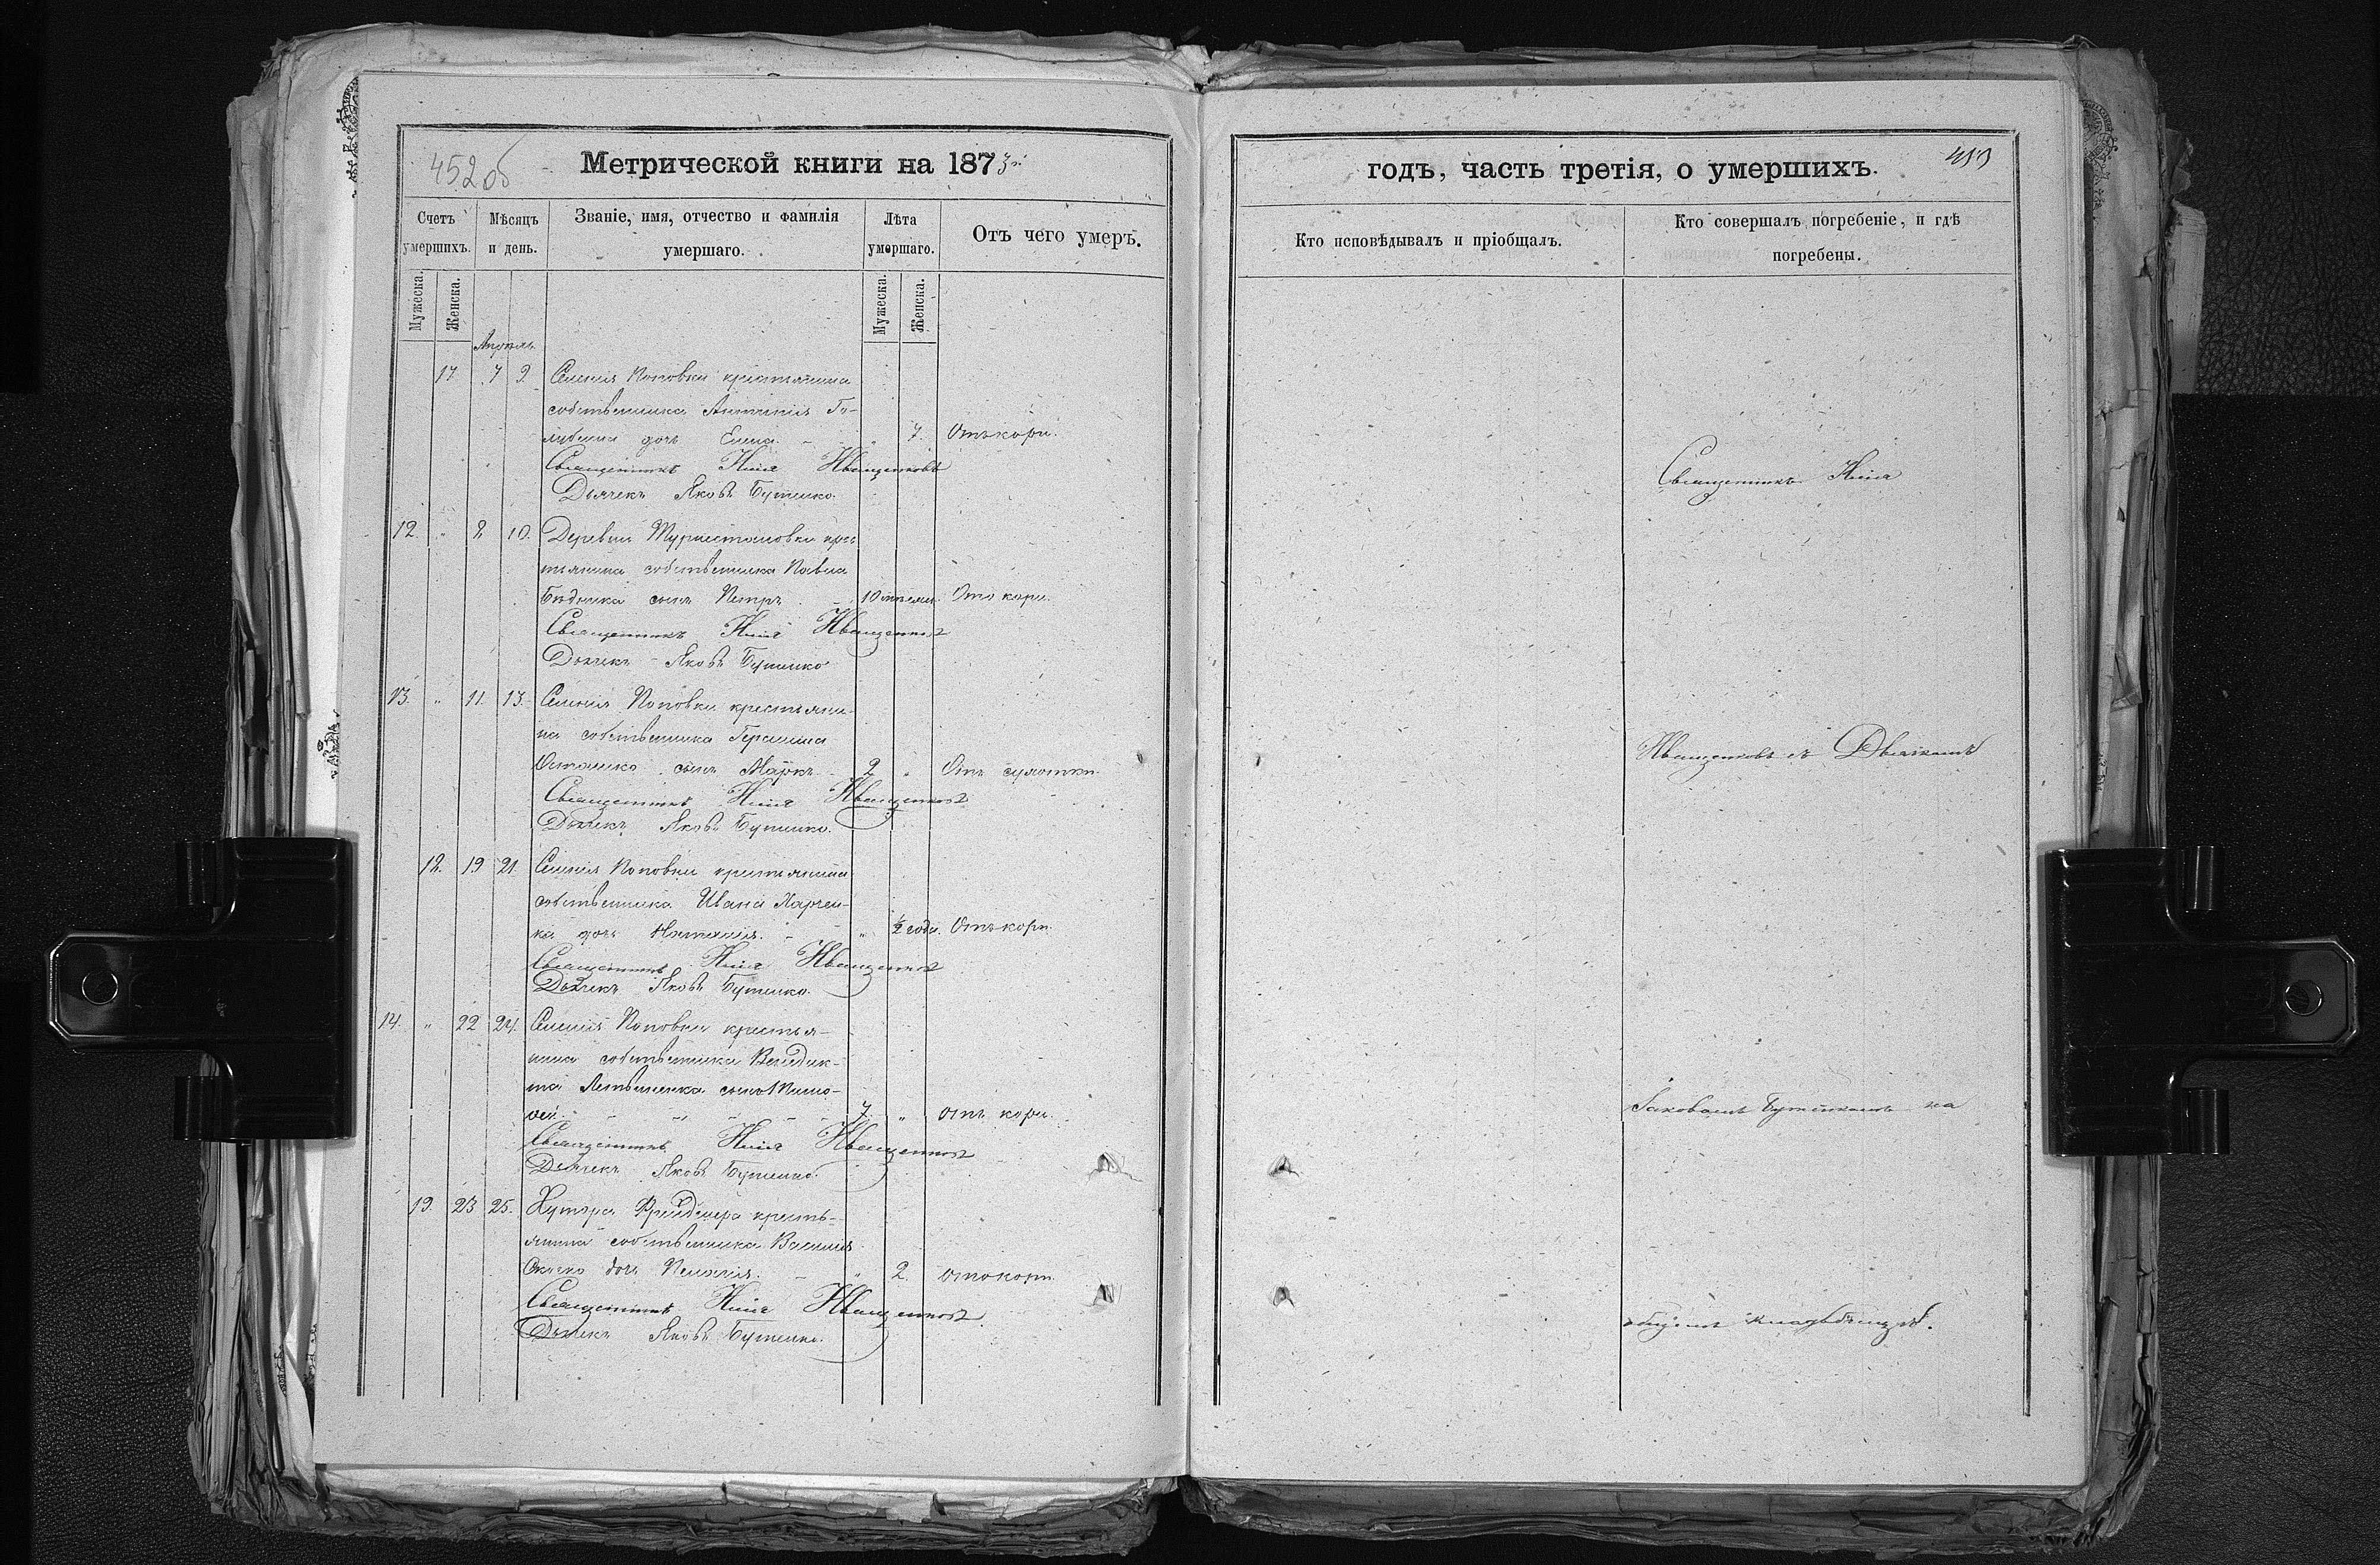 452 об
Метрической книги на 1873
Счетъ умершихъ.
Мѣсяцъ и день.
Званіе, имя, отчество и фамилія умершаго.
Лѣта умершаго.
Отъ чего умеръ.
Мужеска. Женска.
Мужеска. Женска.
Апрель
17 7 9 Селенія Поповки крестьянина
собственника Антонія Го-
лубина дочь Елена " 7. Отъ кори.
Священникъ Иващенковъ
Дьячекъ Яковъ Бутенко.
12. " 8 10. Деревни Туркестановки крес
тьянина собственника Павла
Бѣдника сынъ Петръ 10 Отъ кори.
Священникъ Иващенковъ
Дьячекъ Яковъ Бутенко
13. " 11. 13. Селенія Поповки крестьяни-
на собственника Герасима
Осташко сынъ Маркъ 2 " Отъ сухотки.
Священникъ Иващенковъ
Дьячекъ Яковъ Бутенко.
18. 19 21. Селенія Поповки крестьянина
собственника Ивана Харчен-
ка дочь Наталія. " ½ года. Отъ кори.
Священникъ Иващенковъ
Дьячекъ Яковъ Бутенко.
14. " 22 24. Селенія Поповки крестья-
нина собственника Венедик-
та Литвиненка сынъ Тимо-
фей. 7. " отъ кори.
Священникъ Иващенковъ
Дьячекъ Яковъ Бутенко.
19. 23 25. Хутора кресть-
янина собственника Василія
дочь Пелагія. " 2. отъ кори.
Священникъ Иващенковъ.
Дьячекъ Яковъ Бутенко.
годъ, часть третія, о умершихъ.
453
Кто исповѣдывалъ и пріобщалъ.
Кто совершалъ погребеніе, и гдѣ погребены.
Священникъ
Иващенковъ съ Дьячкомъ
Іаковомъ Бутенкомъ на
общемъ кладбищѣ.